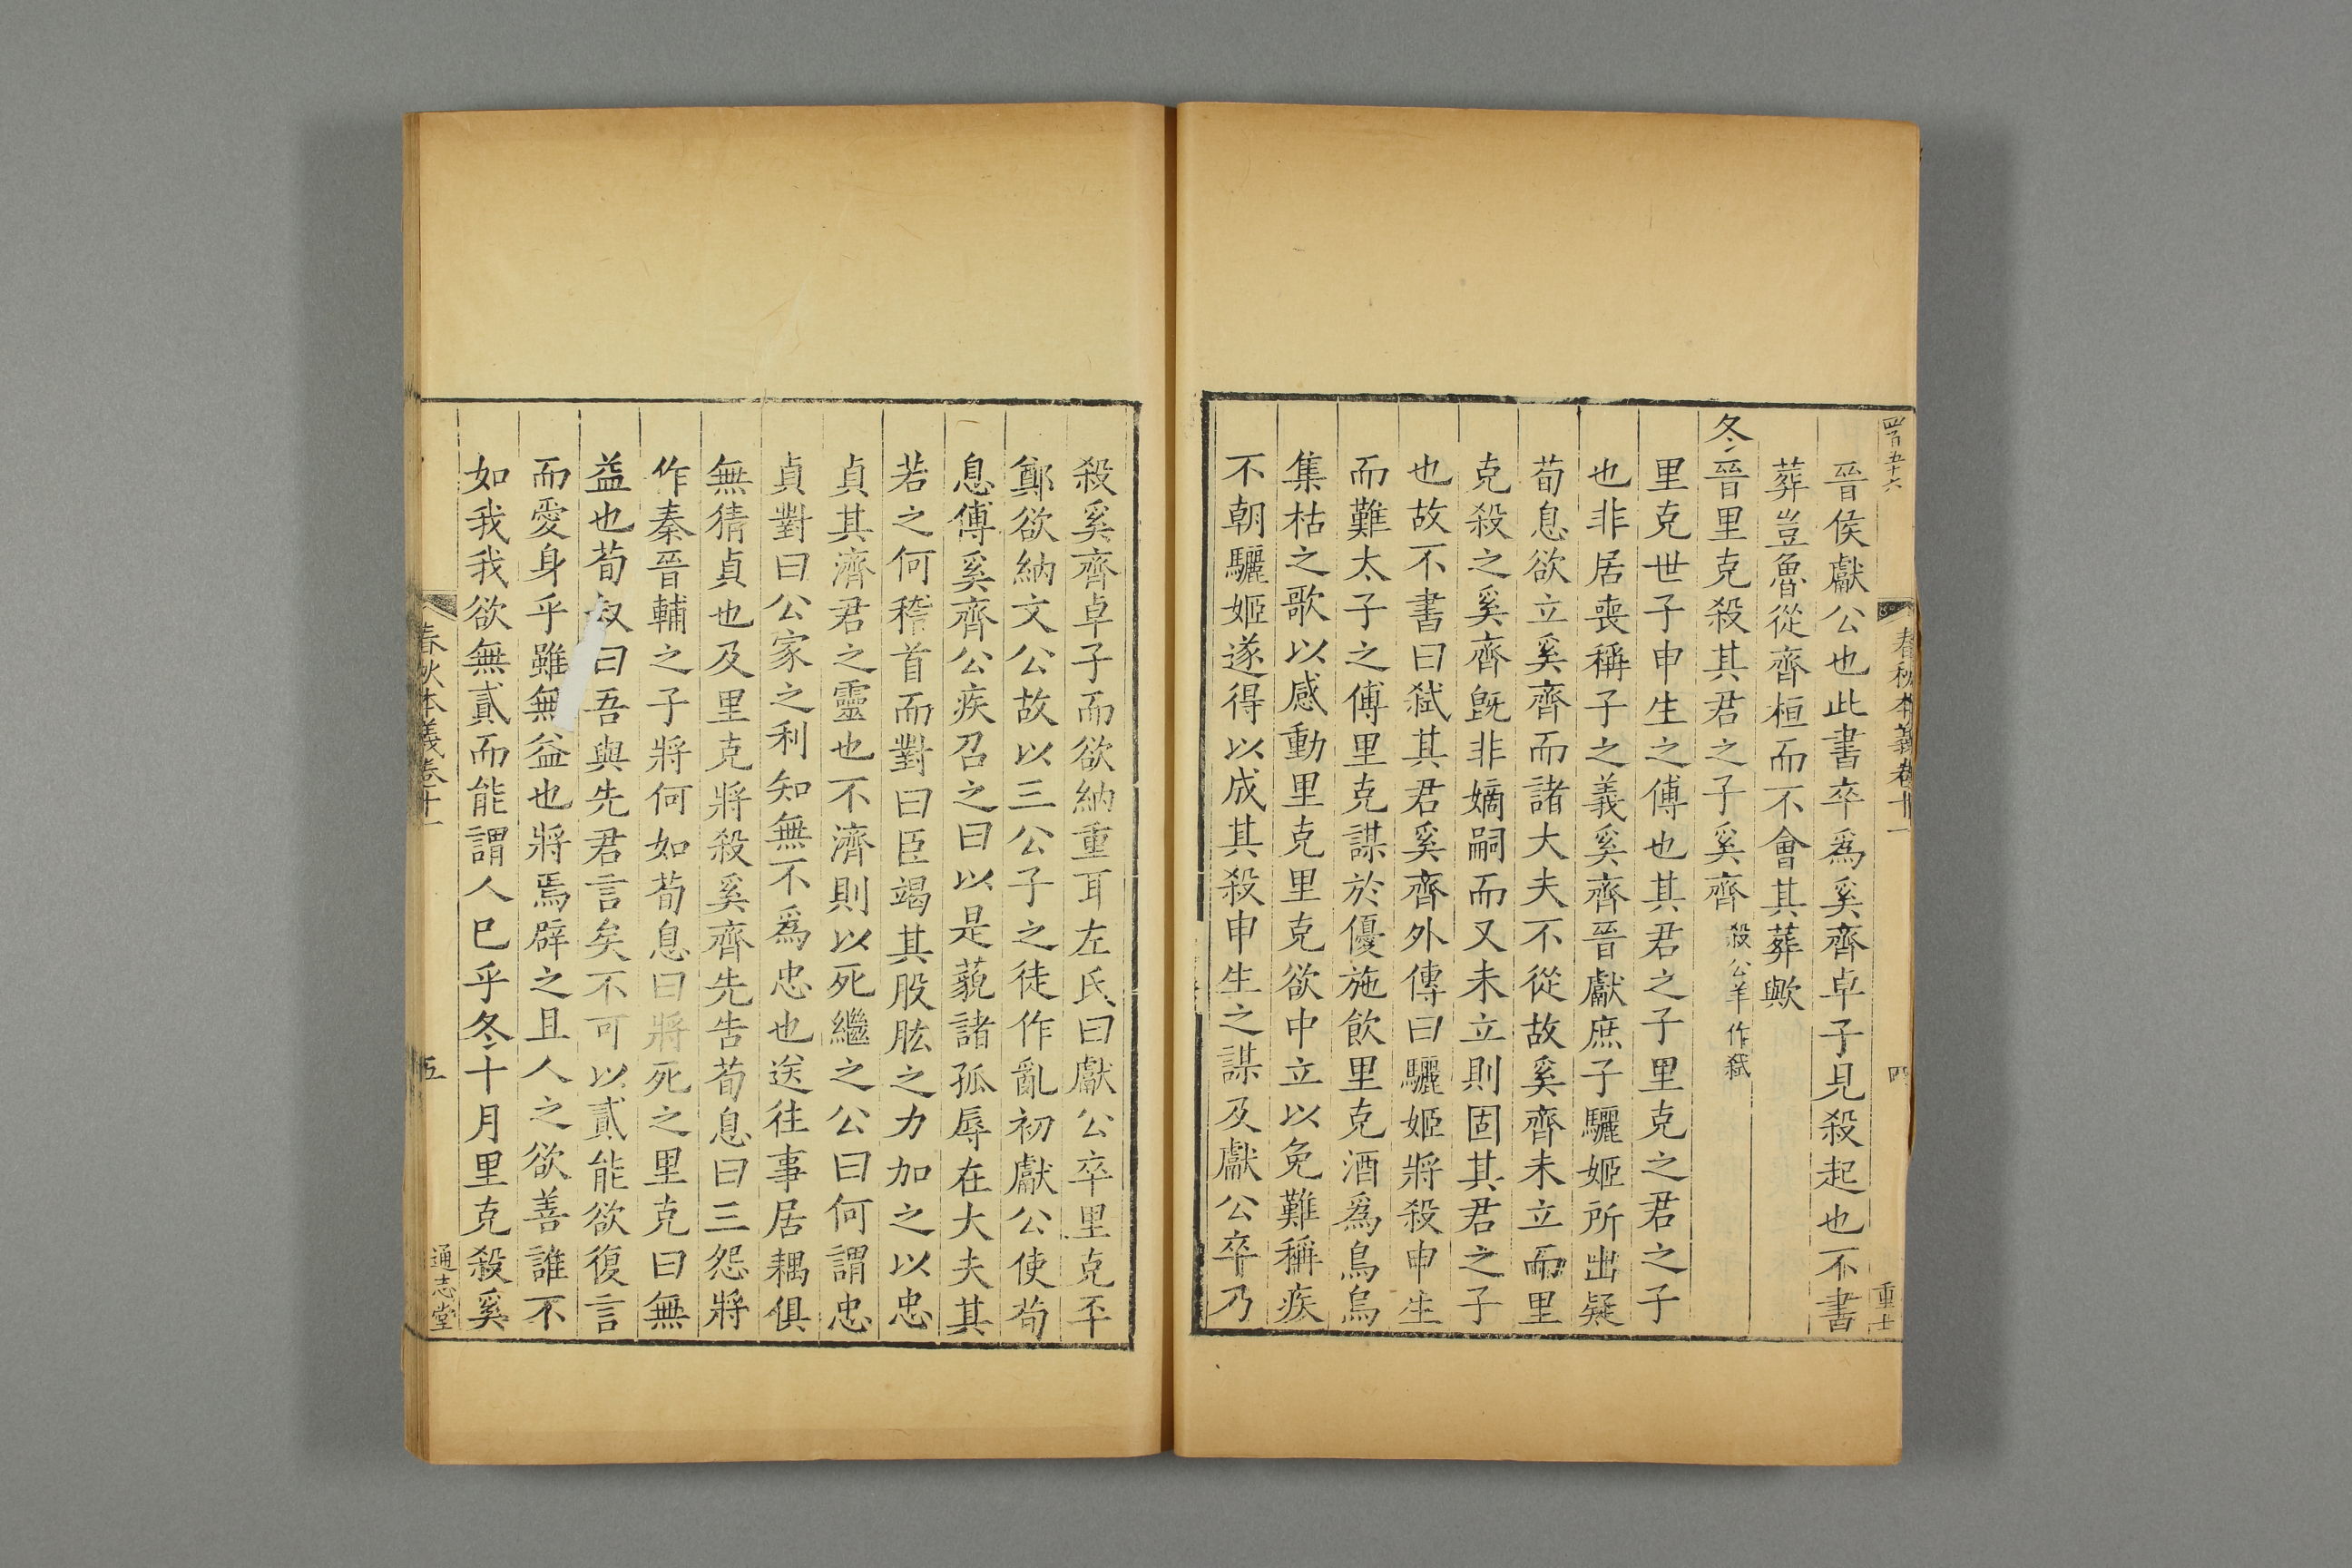 四百五十六
春秋本義卷十一
四
重士
晉侯獻公也此書卒爲奚齊卓子見殺起也不書
葬豈魯從齊桓而不會其葬歟
冬晉里克殺其君之子奚齊殺公羊作弑
里克世子申生之傅也其君之子里克之君之子
也非居喪稱子之義奚齊晉獻庶子驪姬所出疑
荀息欲立奚齊而諸大夫不從故奚齊未立而里
克殺之奚齊旣非嫡嗣而又未立則固其君之子
也故不書曰弑其君奚齊外傳曰驪姬將殺申生
而難太子之傅里克謀於優施飲里克酒爲鳥烏
集枯之歌以感動里克里克欲中立以免難稱疾
不朝驪姬遂得以成其殺申生之謀及獻公卒乃
殺奚齊卓子而欲納重耳左氏曰獻公卒里克丕
鄭欲納文公故以三公子之徒作亂初獻公使荀
息傅奚齊公疾召之曰以是藐諸孤辱在大夫其
若之何稽首而對曰臣竭其股肱之力加之以忠
貞其濟君之靈也不濟則以死繼之公曰何謂忠
貞對曰公家之利知無不爲忠也送往事居耦俱
無猜貞也及里克將殺奚齊先告荀息曰三怨將
作秦晉輔之子將何如荀息曰將死之里克曰無
益也荀叔曰吾與先君言矣不可以貳能欲復言
而愛身乎雖無益也將焉辟之且人之欲善誰不
如我我欲無貳而能謂人巳乎冬十月里克殺奚
春秋本義卷十一
五
通志堂